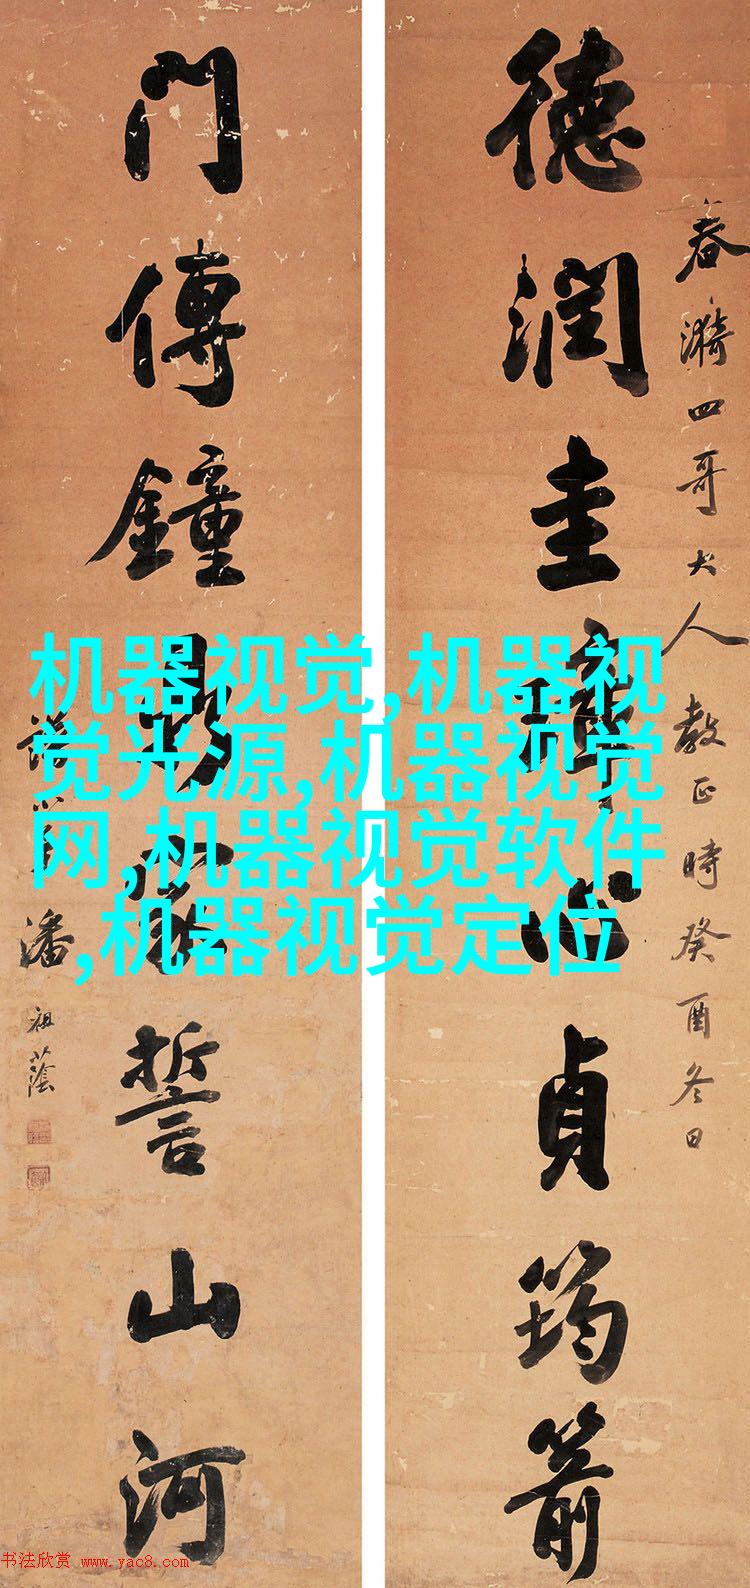 春漪四哥大人教正時癸酉冬日
德潤圭璋心貞筠箭
門傳鐘家誓山河
潘祖蔭
机器视觉,机器视
觉光源,机器视觉
网,机器视觉软件
,机器视觉定位
书法欣赏 www.yac8.com